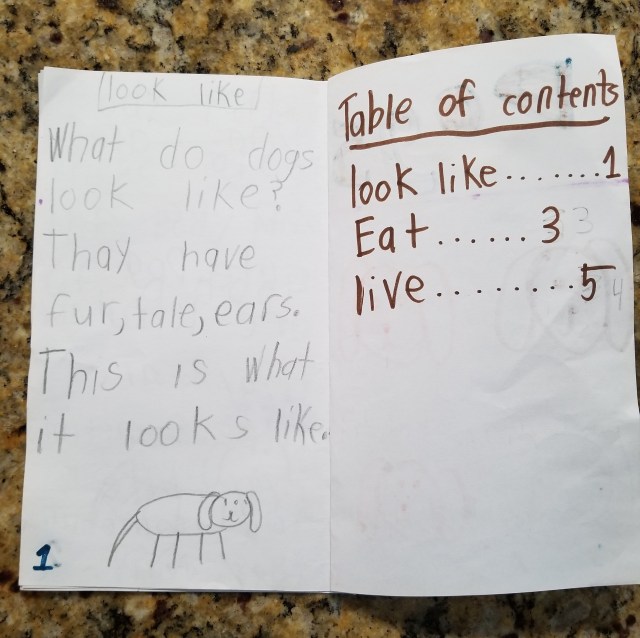 look like
What do dogs
look like?
Thay have
fur, tale, ears.
This is what
it looks like.
1
Table of contents
look like.......1
Eat...... 3 3
live.........5 4